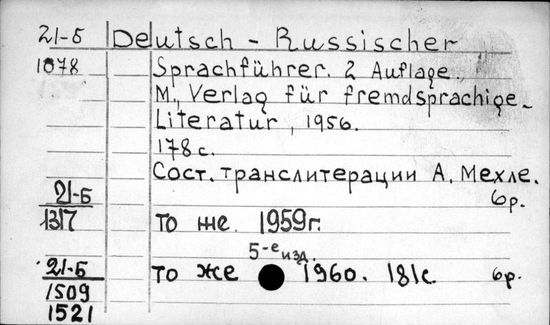 21-Б Deutsch - Russischer
1078 Sprachführer. 2 Auflage.
M., Verlag für fremdsprachige
Literatur, 1956.
178 с.
Сост. транслитерации А. Мехле.
21-Б 6р.
1317 то же 1959г.
5-е изд.
21-Б то же 1960. 181с. 6р.
1509
1521